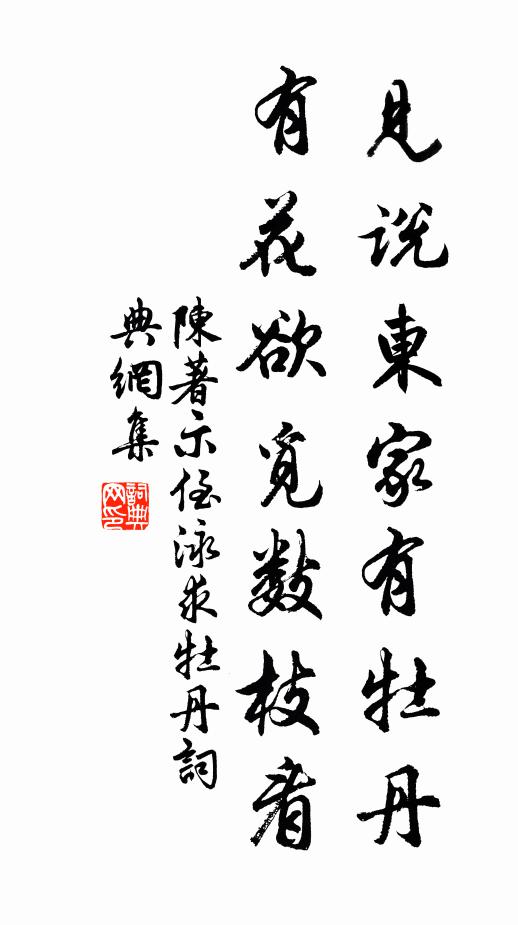 見説東家有牡丹
有花欲覓數枝看
陳著示侄泳求牡丹詞
典網集
詞典網印